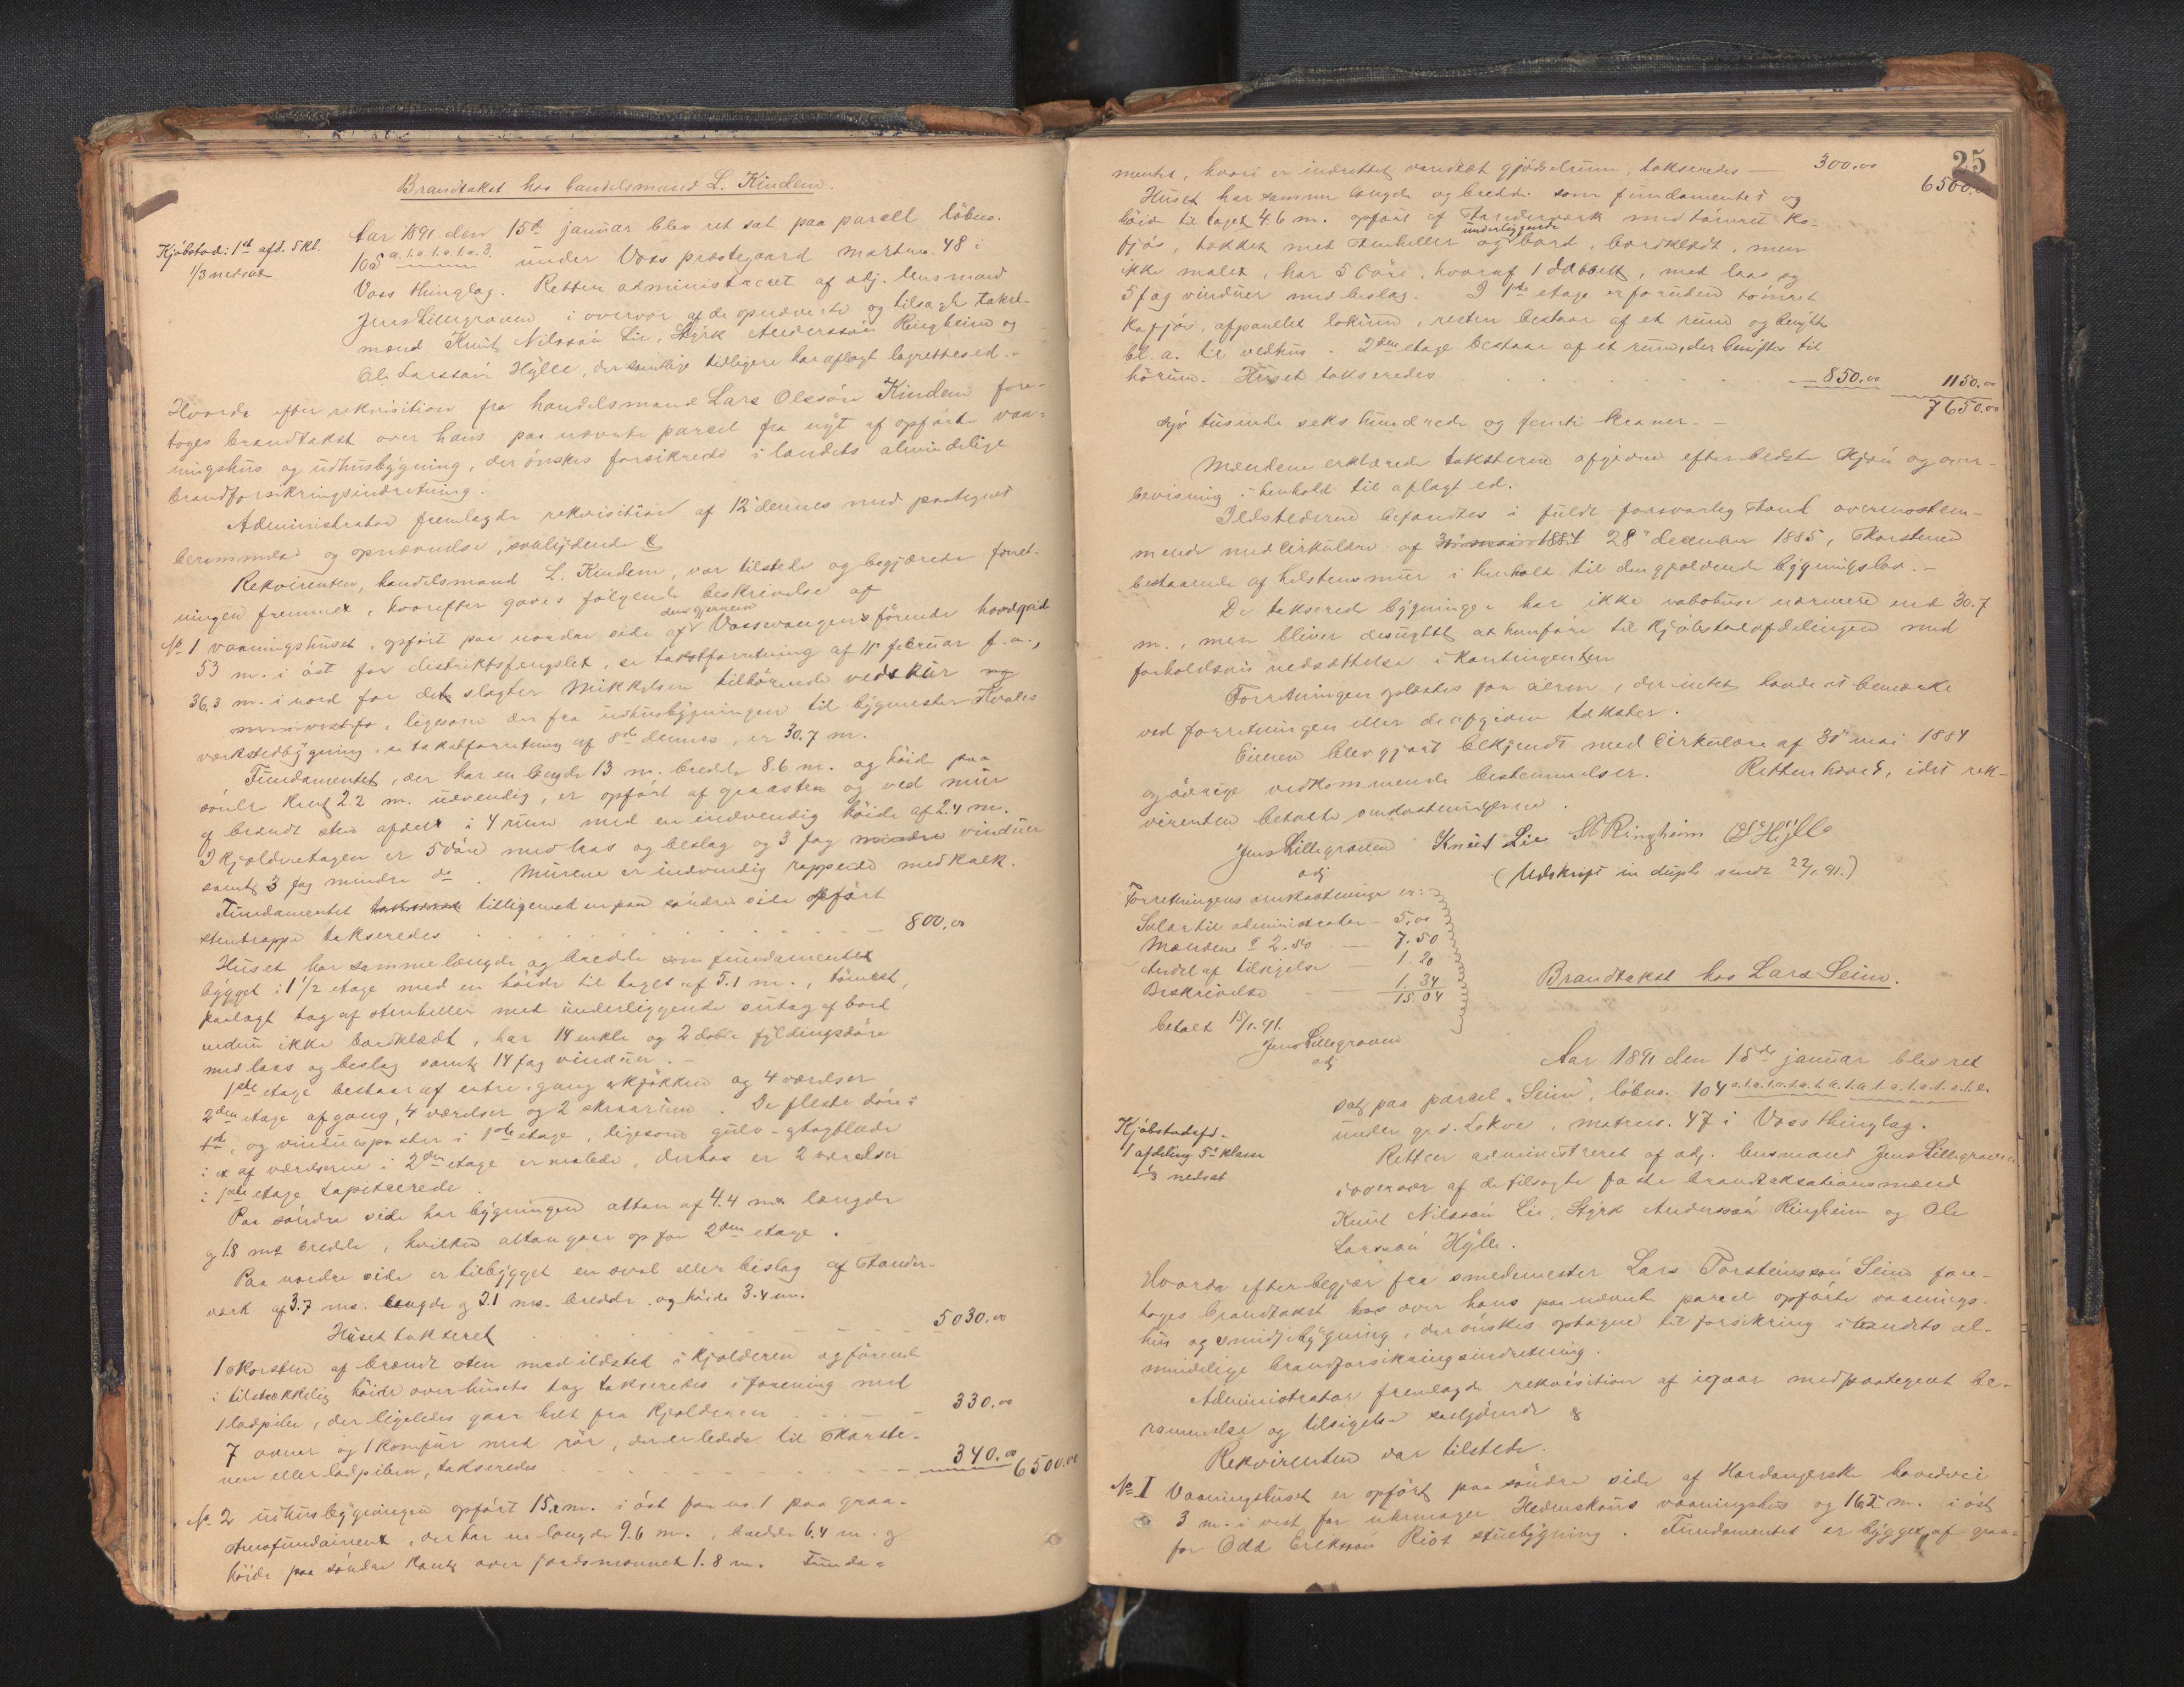 Brandtakst hos handelsmand L. Kindem.
Kjøbstad: 1st afd. 5 kl.
1/3 nedsat
Aar 1891 den 15de januar blev ret sat paa parcell løbno.
105 a.t.o.t.a.t.a.3. under Voss præstegaard martno. 48 i
Voss thinglag. Retten administreret af adj. lensmand
Jens Lillegraven i overvær af de opnævnte og tilsagte takst-
mænd Knut Nilssøn Lie, Styrk Anderssøn Ringheim og
Ole Larssøn Hylle, der samtlige tidligere har aflagt lagrettesed. -
Hvorda efter rekvisition fra handelsmand Lars Olssøn Kindem fore-
toges brandtakst over hans paa nævnte parcel fra nyt af opførte vaa-
ningshus og udhusbygning, der ønskes forsikrede i landets almindelige
brandforsikringsindretning.
Administrator fremlagde rekvisition af 12te dennes med paategnet
berammelse og opnævnelse, saalydende
Rekvirenten, handelsmand L. Kindem, var tilstede og begjærede forret-
ningen fremmet, hvorefter gaves følgende beskrevelse af
No 1 vaaningshuset, opført paa nordre side af den gjennem Vossevangen førende hovedgade
53 m. i øst for distriktsfængslet, se takstforretning af 11te februar f. a.,
36,3 m. i nord for det slagter Mikkelsen tilhørende vedskur og
ligesom der fra udhusbygningen til bygmester Kvales
værkstedbygning, se takstforretning af 8de dennes, er 30.7 m.
Fundamentet, der har en længde 13 m. bredde 8.6 m. og høide paa
søndre kant 2.2 m. udvendig, er opført af graasten og ved mur
af brændt sten afdelt i 4 rum med en indvendig høide af 2.4 m.
I kjælderetagen er 5 døre med laas og beslag og 3 fag mindre vinduer
samt 3 fag mindre do. Murene er indvendig rappede med kalk.
Fundamentet takseres tilligemed en paa søndre side opført
stentrappe takseredes 800.00
Huset har samme længde og bredde som fundamentet
bygget i 1 1/2 etage med en høide til taget af 5.1 m., tømret,
paalagt tag af stenheller med underliggende sutag af bord
endnu ikke bordklædt, har 14 enkle og 2 doble fyldingsdøre
med laas og beslag samt 14 fag vinduer. -
1ste etage bestaar af entre, gang, kjøkken og 4 værelser
2den etage af gang, 4 værelser og 2 skraarum. De fleste døre i
1st, og vinduesposter i 1ste etage, ligesom gulv- og tagflæde
i af værelserne i 2den etage er malede, derhos er 2 værelser
i 1ste etage tapitserede.
Paa søndre side har bygningen altan af 4.4 ms længde
og 1.8 ms bredde, hvilken altan gaar op for 2den etage.
Paa nordre side er tilbygget en sval eller bislag af stander-
værk af 3.7 ms. længde og 2.1 ms. bredde og høide 3.4 m.
Huset takseret 5030.00
1 skorsten af brændt sten med ildsted i kjælderen og førende
i tilstrækkelig høide over husets tag takseredes i forening med
1 ladpibe, der ligeledes gaar helt fra kjælderen 330.00
7 ovner og 1 komfur med rør, der er ledede til skorste-
nen eller ladpiben, takseredes 340.00 6500.00
No. 2 udhusbygningen opført 15.2 m. i øst for no. 1 paa graa-
stensfundament, der har en længde 9.6 m., bredde 6.4 m. og
høide paa søndre kant over jordsmonnet 1.8 m. Funda-
25
mentet, hvori er indrettet vandtæt gjødselrum, takseredes — 300.00
6500.00
Huset har samme længde og bredde som fundamentet og
høide til taget 4.6 m. opført af standerværk med tømret ko-
fjøs, tækket med stenheller og underliggende bord, bordklædt, men
ikke malet, har 5 døre, hvoraf 1 dobbelt, med laas og
5 fag vinduer med beslag. I 1ste etage er foruden tømret
kofjøs, afpanelet lokum, resten bestaar af et rum og benyttes
bl. a. til vedhus. 2den etage bestaar af et rum, der benyttes til
hørum. Huset takseredes 850.00 1150.00
7650.00
syv tusinde seks hundrede og femti kroner. -
Mændene erklærede taksterne afgivne efter bedste skjøn og over-
bevisning i henhold til aflagt ed.
Ildstederne befandtes i fuldt forsvarlig stand overensstem-
mende med cirkulære af 31te mai 1884 28de december 1885, skorstenen
bestaaende af helstensmur i henhold til den gjældende bygningslov. -
De takserede bygninger har ikke nabohuse nærmere end 30.7
m., men bliver desuagtet at henføre til kjøbstadafdelingen med
forholdsvis nedsættelse i kontingenten
Forretningen oplæstes for eieren, der intet havde at bemærke
ved forretningen eller de afgivne takster.
Eieren blev gjort bekjendt med cirkulære af 31te mai 1884
og øvrige vedkommende bestemmelser. Retten hævet, idet rek-
virenten betalte omkostningerne.
Jens Lillegraven Knut Lie S A Ringheim O L Hylle
adj
(Udskrift in duplo sendt 22/1 91.)
Forretningens omkostninger er:
Salær til administrator — 5.00
Mændene à 2.50 — 7.50
Andel af tilsigelse — 1.20
Beskrivelse — 1.34
15.04
betalt 15/1. 91.
Jens Lillegraven
adj
Brandtakst hos Lars Seim.
Kjøbstadafd.
1 afdeling 5te klasse
1/3 nedsat
Aar 1891 den 15de januar blev ret
sat paa parcel „Seim", løbno. 104
under grd. Lekve, matrno. 47 i Voss thinglag.
Retten administreret af adj. lensmand Jens Lillegraven
i overvær af de tilsagte faste brandtaksationsmænd
Knut Nilssøn Lie, Styrk Anderssøn Ringheim og Ole
Larssøn Hylle.
Hvorda efter begjær fra smedemester Lars Torsteinssøn Seim fore-
toges brandtakst hos over hans paa nævnte parcel opførte vaanings-
hus og smidjebygning, der ønskes optagne til forsikring i landets al-
mindelige brandforsikringsindretning.
Administrator fremlagde rekvisition af igaar med paategnet be-
rammelse og tilsigelse saalydende
Rekvirenten var tilstede.
No I Vaaningshuset er opført paa søndre side af Hardangerske hovedvei
3 m. i vest for uhrmager Hedenskaus vaaningshus og 16.2 m. i øst
for Odd Erikssøn Rios stuebygning. Fundamentet er bygget af graa-